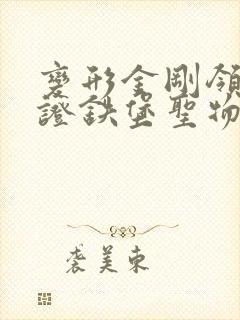 變形金剛領
證鉄堡聖物
裘美東